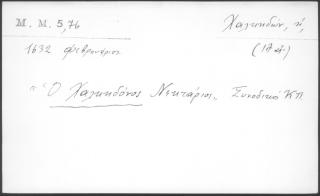 Μ. Μ. 5,76 Χαλκηδών, ἡ,
1632 φεβρουάριος (17 αἰ.)
"Ὁ Χαλκηδόνος Νεκτάριος„ Συνοδικό ΚΠ